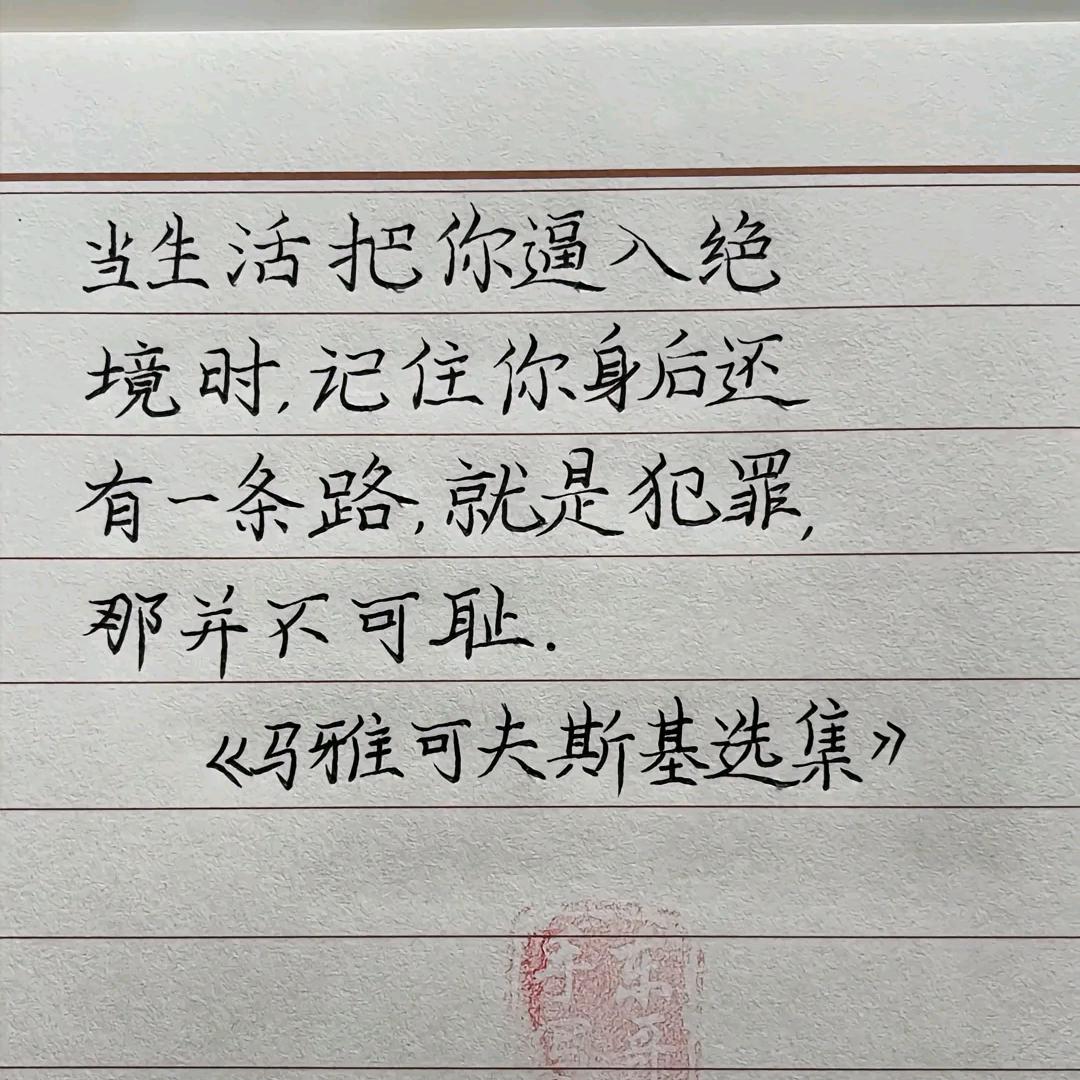 当生活把你逼入绝
境时,记住你身后还
有一条路,就是犯罪,
那并不可耻.
《马雅可夫斯基选集》